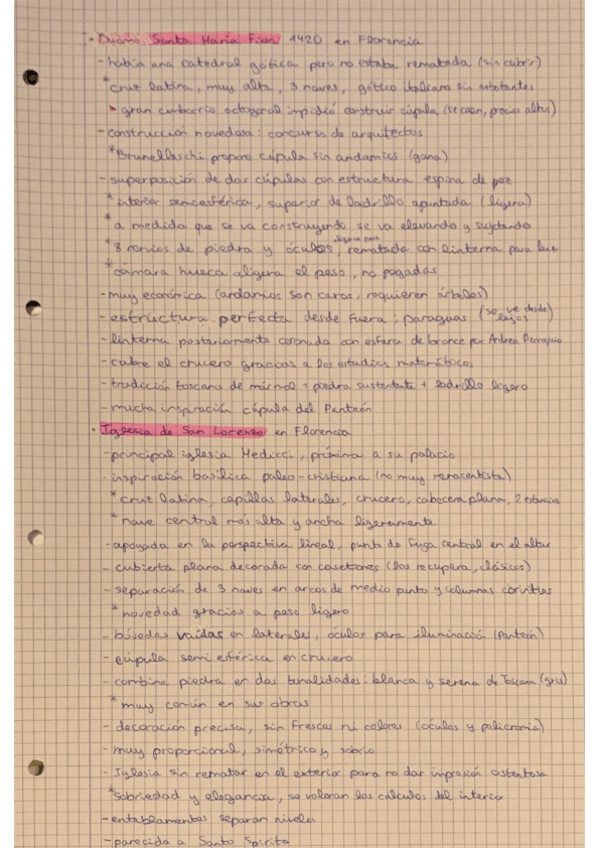 • Duomo Santa María Fiori 1420 en Florencia
- había una catedral gótica pero no estaba rematada (sin cubrir)
* cruz latina, muy alta, 3 naves, gótico italiano sin arbotantes
> gran cimborrio octogonal impidió construir cúpula (se caen, precio altos)
- construcción novedosa: concurso de arquitectos
* Brunelleschi propone cúpula sin andamios (gana)
- superposición de dos cúpulas con estructura espina de pez
* interior semiesférica, superior de ladrillo apuntada (ligera)
* a medida que se va construyendo se va elevando y sujetando
* 8 nervios de piedra y óculos, rematada con linterna para luz
* cámara hueca aligera el peso, no pegadas
- muy económica (andamios son caros, requieren árboles)
- estructura perfecta desde fuera: paraguas (se ve desde lejos)
- linterna posteriormente coronada con esfera de bronce por Andrea
- cubre el crucero gracias a los estudios matemáticos
- tradición toscana de mármol + piedra sustentante + ladrillo ligero
- mucha inspiración cúpula del Panteón
• Iglesia de San Lorenzo en Florencia
- principal iglesia Medicci, próxima a su palacio
- inspiración basílica paleo-cristiana (no muy renacentista)
* cruz latina, capillas laterales, crucero, cabecera plana, 2
* nave central más alta y ancha ligeramente
- apoyada en la perspectiva lineal, punto de fuga central en el altar
- cubierta plana decorada con casetones (los recupera, clásicos)
- separación de 3 naves en arcos de medio punto y columnas corintias
* novedad gracias a peso ligero
- bóvedas vaídas en laterales, óculos para iluminación (Panteón)
- cúpula semiesférica en crucero
- combina piedra en dos tonalidades: blanca y serena de Toscana (gris)
* muy común en sus obras
- decoración precisa, sin frescos ni colores (óculos y policromía)
- muy proporcional, simétrico y sobrio
- Iglesia sin rematar en el exterior para no dar impresión ostentosa
* Sobriedad y elegancia, se valoran los cálculos del interior
- entablamentos separan niveles
- parecida a Santo Spirito